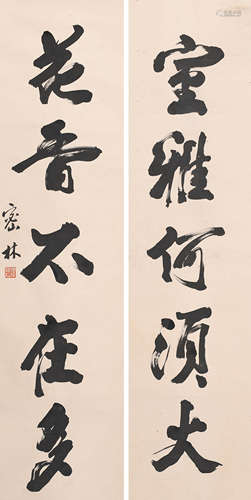 室雅何须大
花香不在多
密林